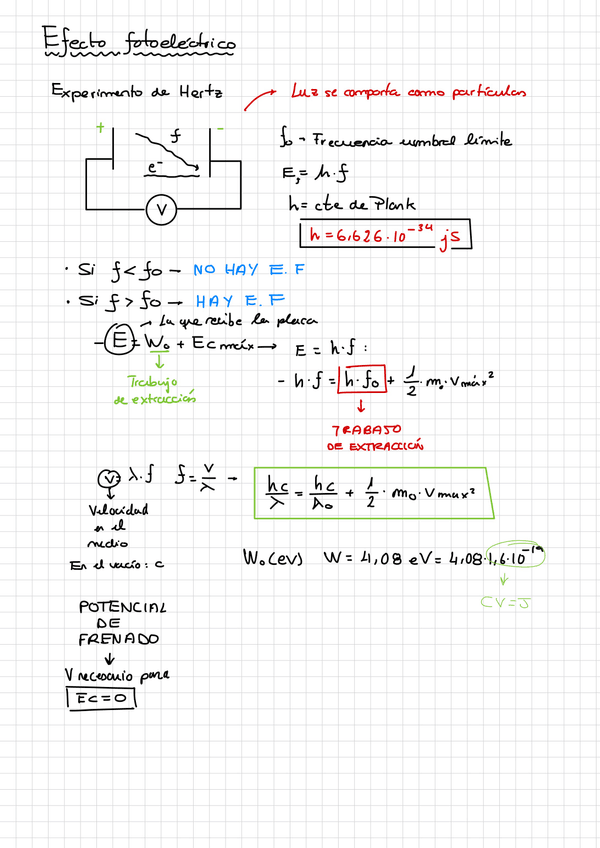 Efecto fotoeléctrico
Experimento de Hertz
Luz se comporta como partículas
+ f -
e⁻
V
f₀ → Frecuencia umbral límite
E = h·f
h = cte de Plank
h = 6,626·10⁻³⁴ js
· Si f < f₀ → NO HAY E.F
· Si f > f₀ → HAY E.F
→ La que recibe la placa
- E = W₀ + Ec máx → E = h·f :
Trabajo
de extracción
- h·f = h·f₀ + 1/2 · m₀ · V máx²
TRABAJO
DE EXTRACCIÓN
V = λ·f f = V/λ →
hc/λ = hc/λ₀ + 1/2 · m₀ · V max²
Velocidad
en el
medio
En el vacío : c
W₀ (eV) W = 4,08 eV = 4,08·1,6·10⁻¹⁹
CV = J
POTENCIAL
DE
FRENADO
V necesario para
Ec = 0